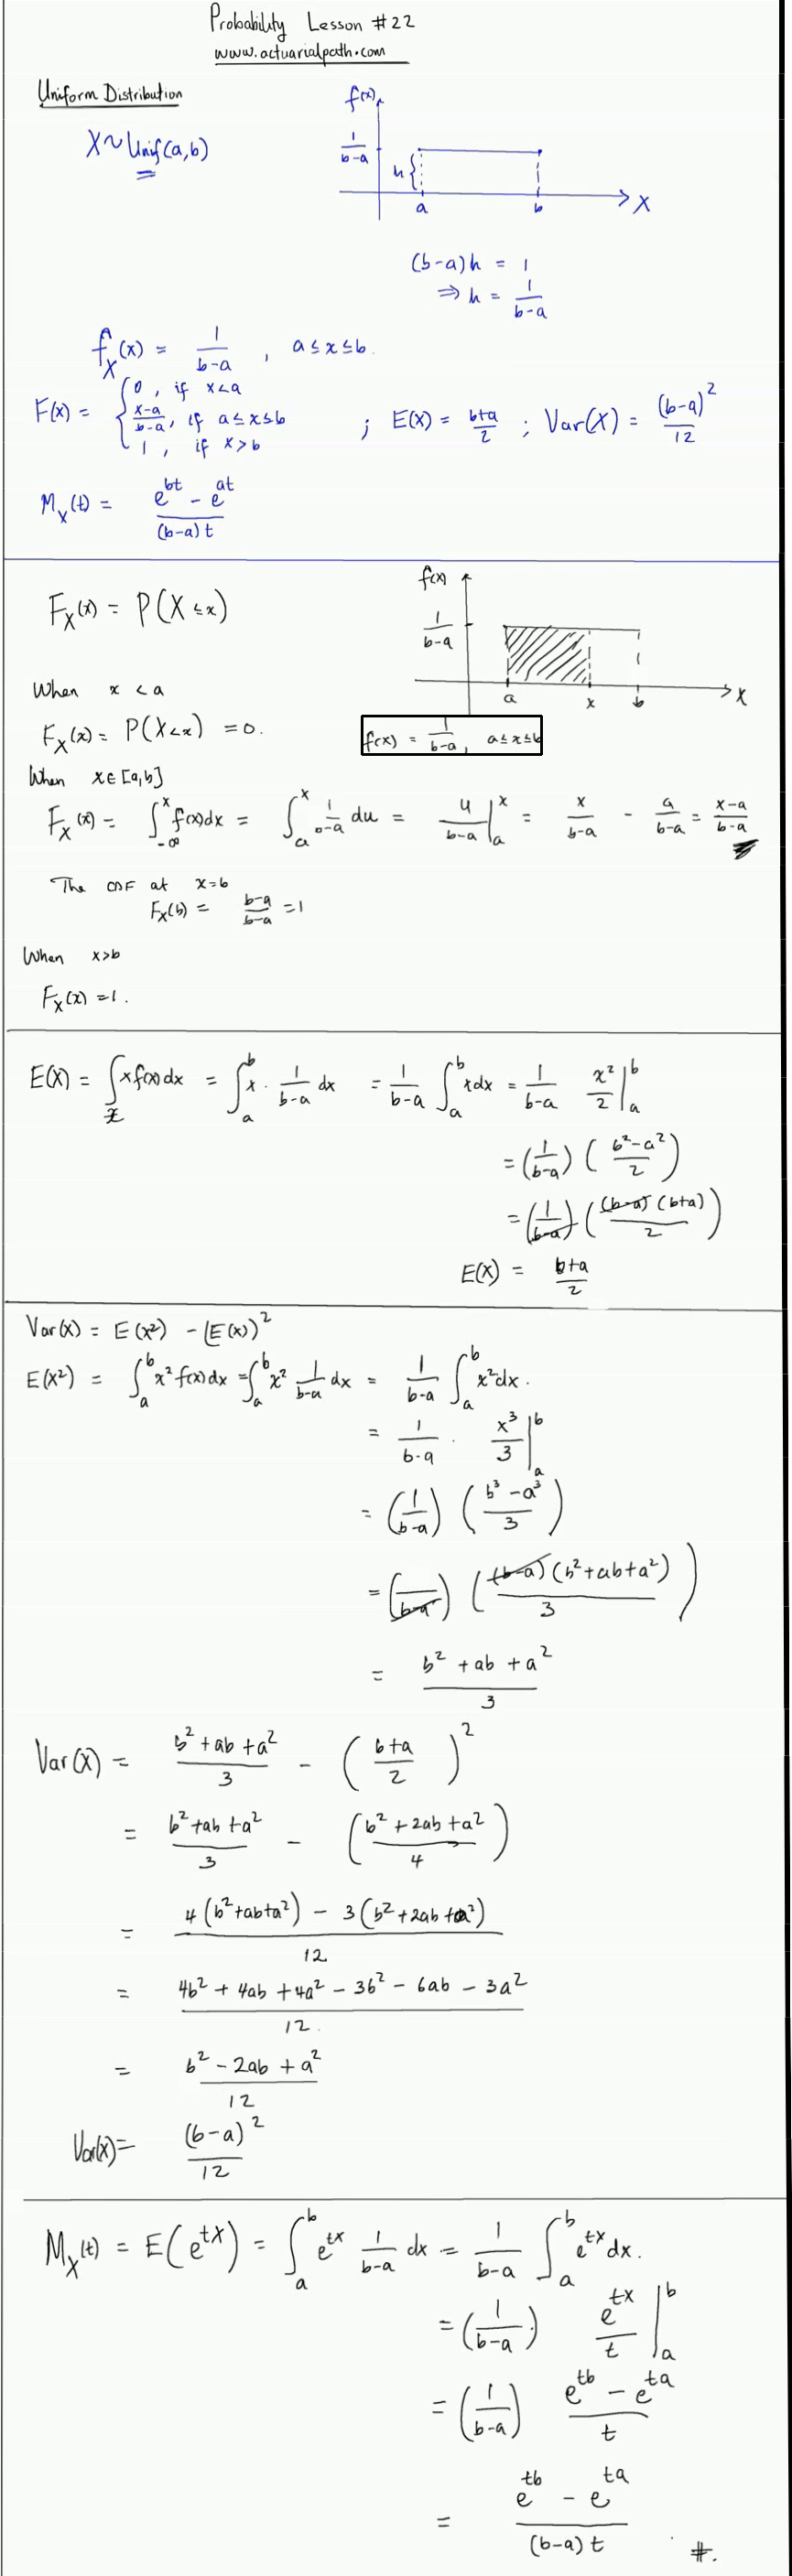 Probability Lesson #22
www.actuarialpath.com
Uniform Distribution
X ~ Unif(a,b)
f(x)
1/(b-a)
h{
a b X
(b-a)h = 1
⇒ h = 1/(b-a)
f_X(x) = 1/(b-a) , a ≤ x ≤ b.
F(x) = { 0 , if x<a
(x-a)/(b-a), if a ≤ x ≤ b
1 , if x > b
; E(X) = (b+a)/2 ; Var(X) = (b-a)^2/12
M_X(t) = (e^bt - e^at)/((b-a)t)
F_X(x) = P(X ≤ x)
f(x)
1/(b-a)
a x b X
When x < a
F_X(x) = P(X<x) = 0.
f(x) = 1/(b-a), a ≤ x ≤ b
When x ∈ [a,b]
F_X(x) = ∫_-∞^x f(x)dx = ∫_a^x 1/(b-a) du = u/(b-a) |_a^x = x/(b-a) - a/(b-a) = (x-a)/(b-a)
The CDF at x=b
F_X(b) = (b-a)/(b-a) = 1
When x>b
F_X(x) = 1.
E(X) = ∫_x x f(x) dx = ∫_a^b x · 1/(b-a) dx = 1/(b-a) ∫_a^b x dx = 1/(b-a) x^2/2 |_a^b
= (1/(b-a)) ((b^2-a^2)/2)
= (1/(b-a)) ((b-a)(b+a)/2)
E(X) = (b+a)/2
Var(X) = E(X^2) - (E(X))^2
E(X^2) = ∫_a^b x^2 f(x) dx = ∫_a^b x^2 1/(b-a) dx = 1/(b-a) ∫_a^b x^2 dx.
= 1/(b-a) · x^3/3 |_a^b
= (1/(b-a)) ((b^3 - a^3)/3)
= (1/(b-a)) ((b-a)(b^2+ab+a^2)/3)
= (b^2 + ab + a^2)/3
Var(X) = (b^2 + ab + a^2)/3 - ((b+a)/2)^2
= (b^2 + ab + a^2)/3 - ((b^2 + 2ab + a^2)/4)
= (4(b^2+ab+a^2) - 3(b^2+2ab+a^2))/12
= (4b^2 + 4ab + 4a^2 - 3b^2 - 6ab - 3a^2)/12.
= (b^2 - 2ab + a^2)/12
Var(X) = (b-a)^2/12
M_X(t) = E(e^tX) = ∫_a^b e^tx 1/(b-a) dx = 1/(b-a) ∫_a^b e^tx dx.
= (1/(b-a)) e^tx/t |_a^b
= (1/(b-a)) (e^tb - e^ta)/t
= (e^tb - e^ta)/((b-a)t) #.